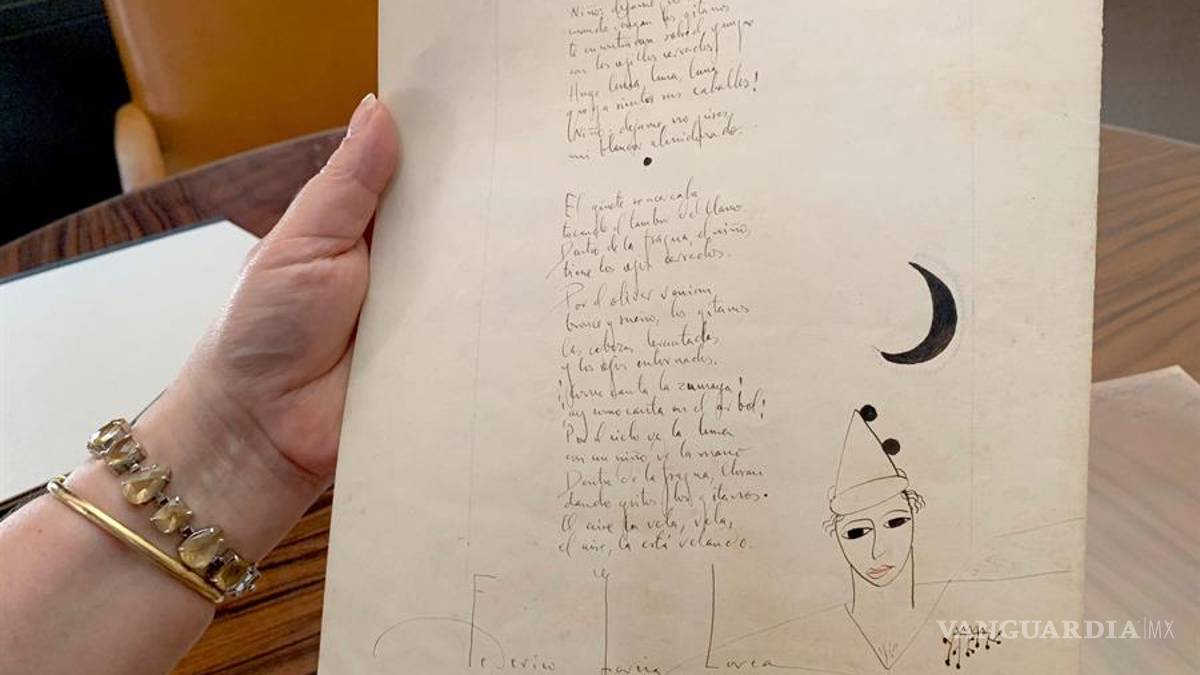 Niño; dejame
cuando vengan los gitanos
te encontrarán sobre el yunque
con los ojillos cerrados
Huye luna, luna, luna
que ya siento sus caballos!
Niño; dejame, no pises,
mi blancor almidonado.
El ginete se acercaba
tocando el tambor del llano.
Dentro de la fragua, el niño,
tiene los ojos cerrados.
Por el olivar venian
bronce y sueño, los gitanos
las cabezas levantadas
y los ojos entornados.
¡Como canta la zumaya!
¡ay como canta en el arbol!
Por el cielo va la luna
con un niño de la mano
Dentro de la fragua, lloran
dando gritos, los gitanos.
El aire la vela, vela,
el aire, la está velando.
Federico García Lorca
VANGUARDIA|MX